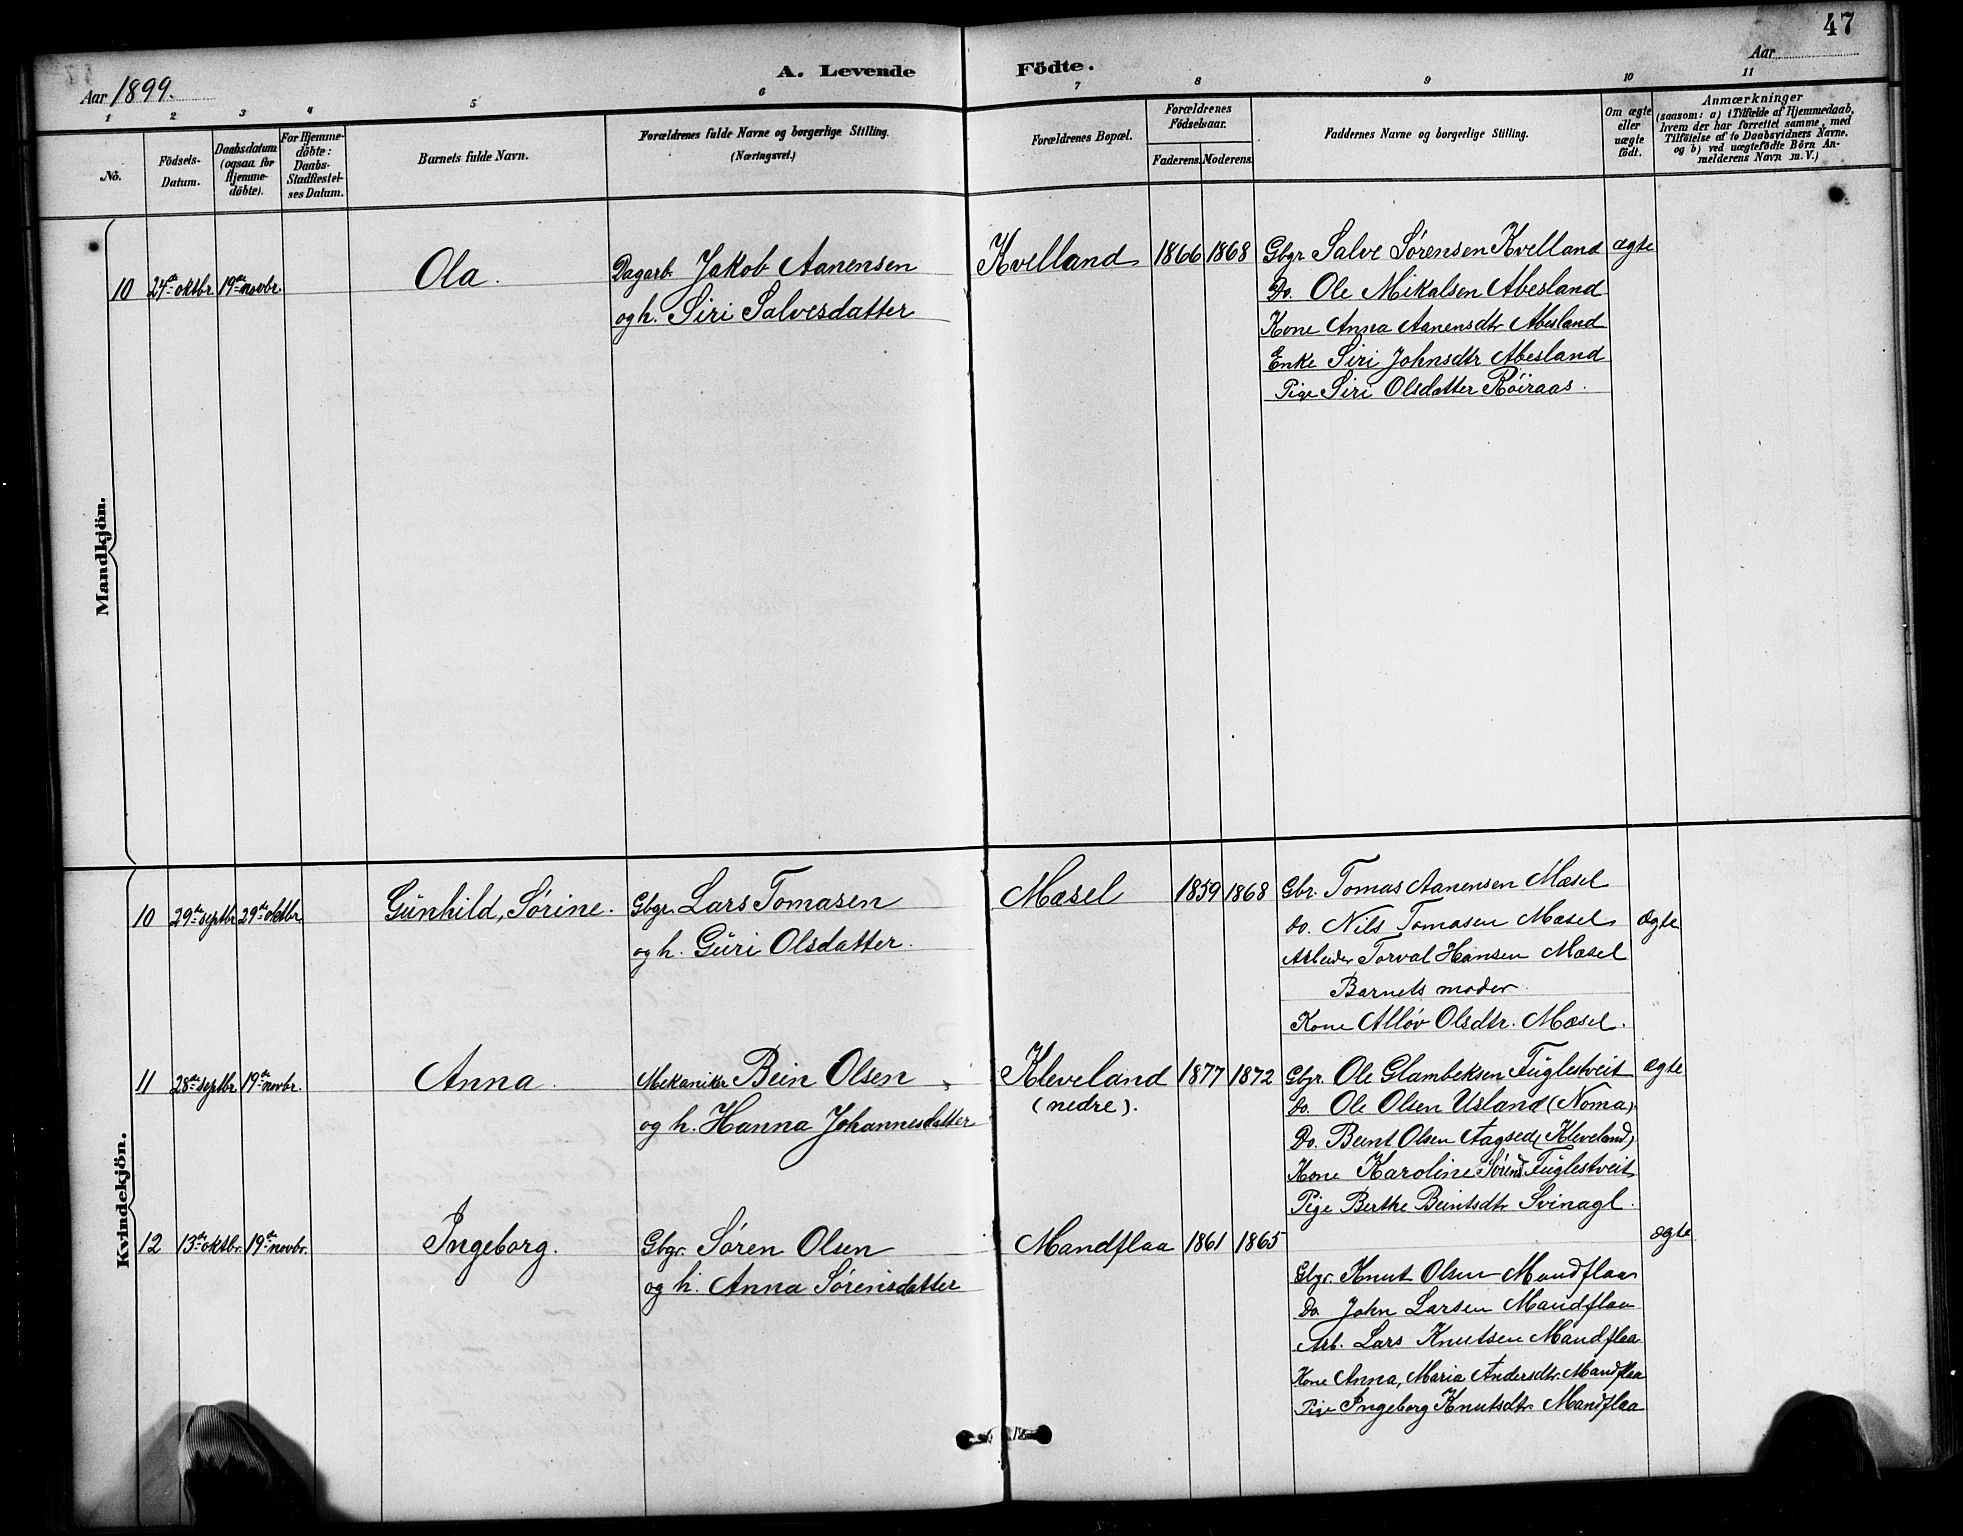 47
Aar 1899.
A. Levende Födte.
Aar
1 2 3 4 5 6 7 8 9 10 11
No.
Födsels-Datum.
Daabsdatum (ogsaa for Hjemme-döbte).
For Hjemme-döbte: Daabs-Stadfæstel-ses Datum.
Barnets fulde Navn.
Forældrenes fulde Navne og borgerlige Stilling. (Næringsvei.)
Forældrenes Bopæl.
Forældrenes Födselsaar.
Faderens. Moderens.
Faddernes Navne og borgerlige Stilling.
Om ægte eller uægte födt.
Anmærkninger
(saasom: a) i Tilfælde af Hjemmedaab,
hvem der har forrettet samme, med
Tilföielse af to Daabsvidners Navne.
og b) ved uægtefödte Börn An-
melderens Navn m. V.)
Mandkjön.
10 24de oktbr. 19de novbr. Ola. Dagarb. Jakob Aanensen Kvelland 1866 1868 Gbgr Salve Sørensen Kvelland ægte
og h. Siri Salvesdatter Do. Ole Mikalsen Abesland
Kone Anna Aanensdtr Abesland
Enke Siri Johnsdtr Abesland
Pige Siri Olsdatter Röiraas.
Kvindekjön.
10 29de septbr 29de oktbr Gunhild, Sørine. Gbgr. Lars Tomasen Mæsel 1859 1868 Gbr. Tomas Aanensen Mæsel
og h. Guri Olsdatter. do. Nils Tomasen Mæsel ægte
Arbeider Torval Hansen Mæsel
Barnets moder
Kone Alløv Olsdtr. Mæsel.
11 28de septbr 19de novbr. Anna. Mekaniker Bein Olsen Kleveland 1877 1872 Gbgr. Ole Glambeksen Fuglestveit ægte
og h. Hanna Johannesdatter (nedre). do. Ole Olsen Usland (Noma)
Do. Beint Olsen Aagsed (Kleveland)
Kone Karoline Sørensd Fuglestveit
Pige Berthe Beintsdtr Svinagl.
12 13de oktbr. 19de novbr. Ingeborg. Gbgr. Søren Olsen Mandflaa 1861 1865 ægte
og h. Anna Sørensdatter Gbgr. Knut Olsen Mandflaa
Do. John Larsen Mandflaa
Arb. Lars Knutsen Mandflaa
Kone Anna, Maria Andersdtr. Mandflaa
Pige Ingeborg Knutsdtr Mandflaa